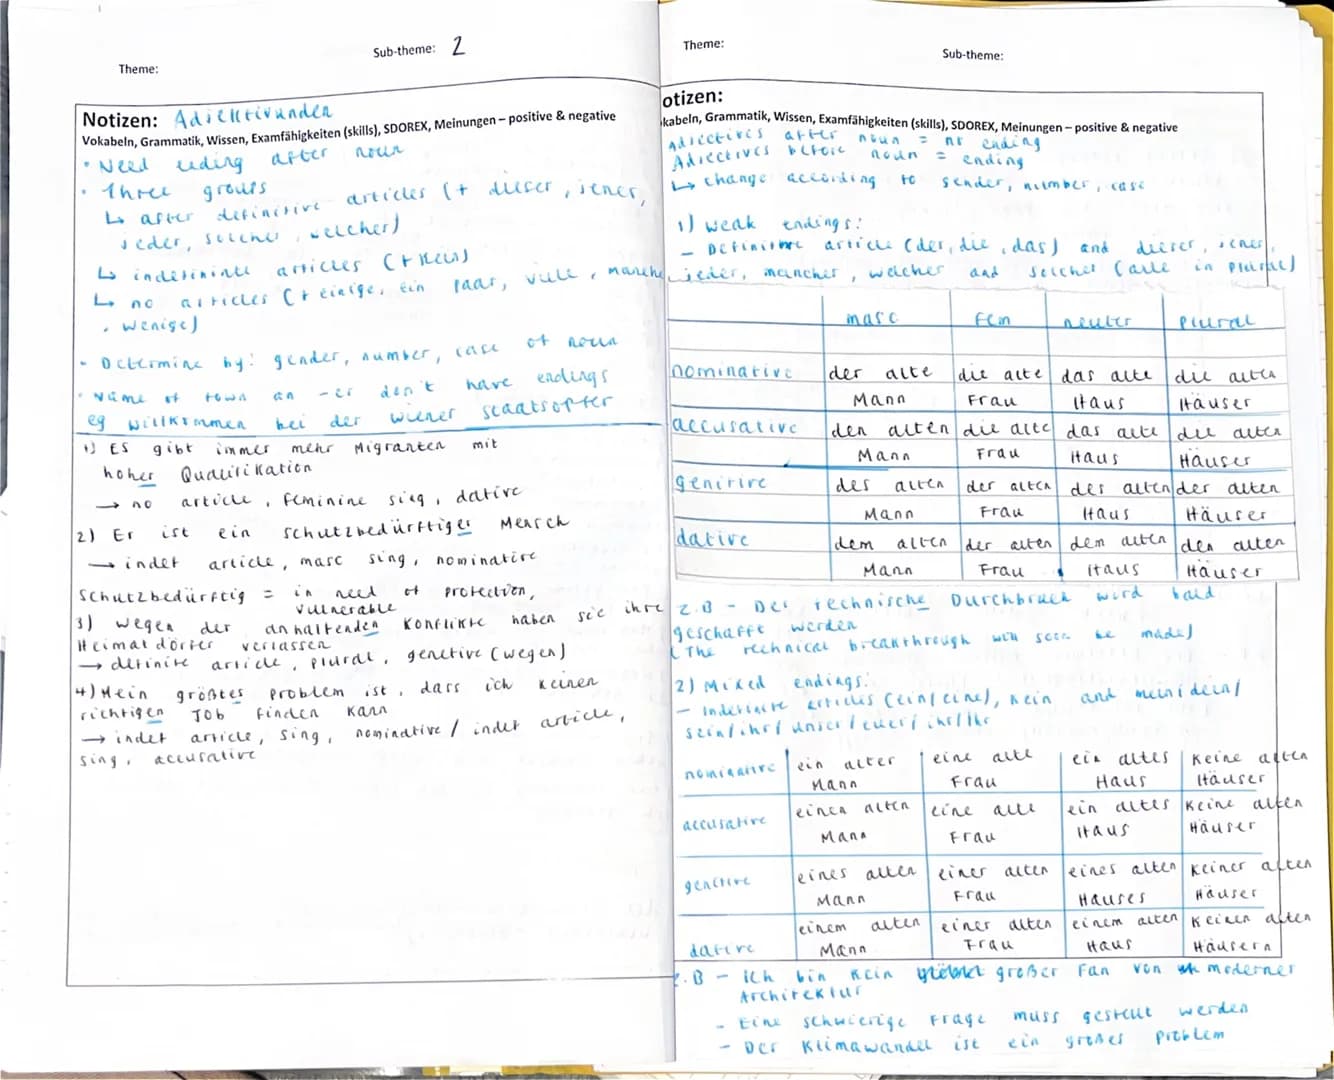 Theme:
Sub-theme: 2
Notizen: Adjektivenden
Vokabeln, Grammatik, Wissen, Examfähigkeiten (skills), SDOREX, Meinungen – positive & negative
• Need ending after noun
• Three groups
↳ after definitive articles (+ dieser, jener,
jeder, solcher, welcher)
↳ indefinite articles (+ kein)
↳ no articles (+ einige, ein paar, viele, manche
, wenige)
• Determine by: gender, number, case of noun
• Name of town an -er don't have endings
eg Willkommen bei der Wiener Staatsopfer
1) Es gibt immer mehr Migranten mit
hoher Qualifikation
→ no article, feminine sing, dative
2) Er ist ein schutzbedürftiger Mensch
→ indef article, masc sing, nominative
Schutzbedürftig = in need of protection,
vulnerable
3) wegen der anhaltenden Konflikte haben sie ihre
Heimatdörfer verlassen
→ definite article, plural, genetive (wegen)
4) Mein größtes Problem ist, dass ich keinen
richtigen Job finden kann
→ indef article, sing, nominative / indef article,
sing, accusative
Theme:
Sub-theme:
otizen:
kabeln, Grammatik, Wissen, Examfähigkeiten (skills), SDOREX, Meinungen – positive & negative
Adjectives after noun = no ending
Adjectives before noun = ending
↳ change according to gender, number, case
1) weak endings:
– Definitive article (der, die, das) and dieser, jener,
jeder, mancher, welcher and solcher (alle in plural)
masc fem neuter plural
nominative der alte die alte das alte die alten
Mann Frau Haus Häuser
accusative den alten die alte das alte die alten
Mann Frau Haus Häuser
genitive des alten der alten des alten der alten
Mann Frau Haus Häuser
dative dem alten der alten dem alten den alten
Mann Frau Haus Häuser
z.B – Der technische Durchbruch wird bald
geschafft werden
(The technical breakthrough will soon be made)
2) Mixed endings:
– Indefinite articles (ein/eine), kein and mein/dein/
sein/ihr/unser/euer/ihr/Ihr
nominative ein alter eine alte ein altes keine alten
Mann Frau Haus Häuser
accusative einen alten eine alte ein altes keine alten
Mann Frau Haus Häuser
genitive eines alten einer alten eines alten keiner alten
Mann Frau Hauses Häuser
dative einem alten einer alten einem alten keinen alten
Mann Frau Haus Häusern
z.B – Ich bin kein großer Fan von moderner
Architektur
– Eine schwierige Frage muss gestellt werden
– Der Klimawandel ist ein großes Problem